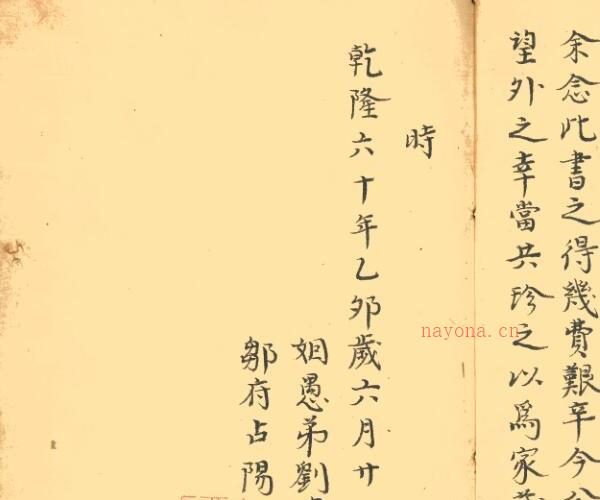 余念此書之得幾費艱辛今
望外之幸當共珍之以爲家
時
乾隆六十年乙卯歲六月廿
姻愚弟劉
鄒府占陽
nayona.cn